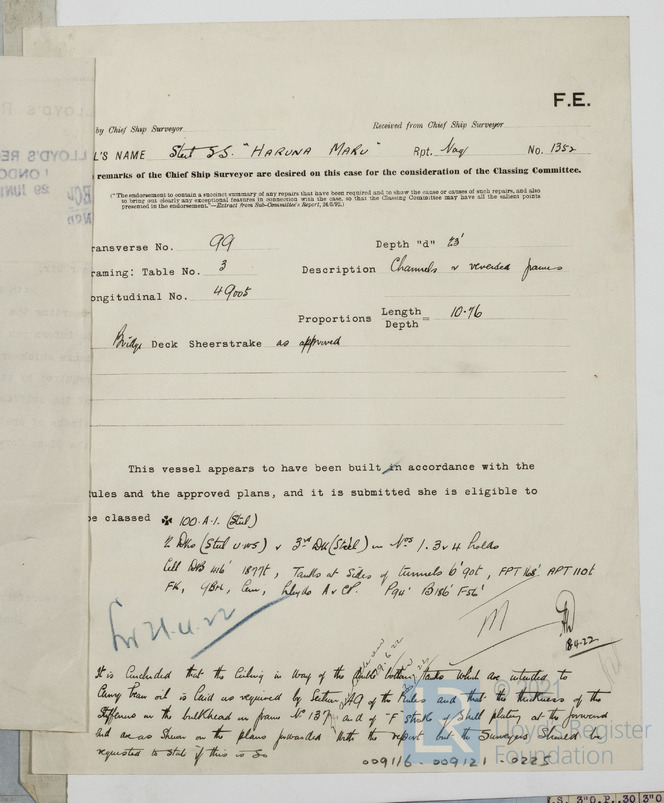 F.E.
by Chief Ship Surveyor
Received from Chief Ship Surveyor
L'S NAME Steel S.S. "HARUNA MARU" Rpt. Nag No. 1352
remarks of the Chief Ship Surveyor are desired on this case for the consideration of the Classing Committee.
("The endorsement to contain a succinct summary of any repairs that have been required and to show the cause or causes of such repairs, and also
to bring out clearly any exceptional features in connection with the case, so that the Classing Committee may have all the salient points
presented in the endorsement."—Extract from Sub-Committee's Report,
ransverse No. 99 Depth "d" 23'
raming: Table No. 3 Description Channels & reversed frames
ongitudinal No. 49005
Proportions Length
Depth = 10.76
Bridge Deck Sheerstrake as approved
This vessel appears to have been built in accordance with the
ules and the approved plans, and it is submitted she is eligible to
be classed ✠ 100.A.1. (Steel)
2 Dks (Steel & 3rd Dk (Steel) in Nos 1. 3 & 4 holds
Cell DB 416' 1877t, Tanks at sides of tunnels 6' 90t, FPT 168t APT 110t
FK, Cem, Lloyds A & CP. P94' B186' F56'
21.4.22
18.4.22
It is concluded that the ceiling in way of the double bottom tanks which are intended to
carry bean oil is laid as required by Section 49 of the Rules and that the thickness of the
stiffeners on the bulkhead on frame No 137 and of "F" strake of shell plating at the forward
end are as shewn on the plans forwarded with the report but the Surveyors should be
requested to state if this is so
© 2021
LR Lloyd's Register
Foundation
009116-009121-0225